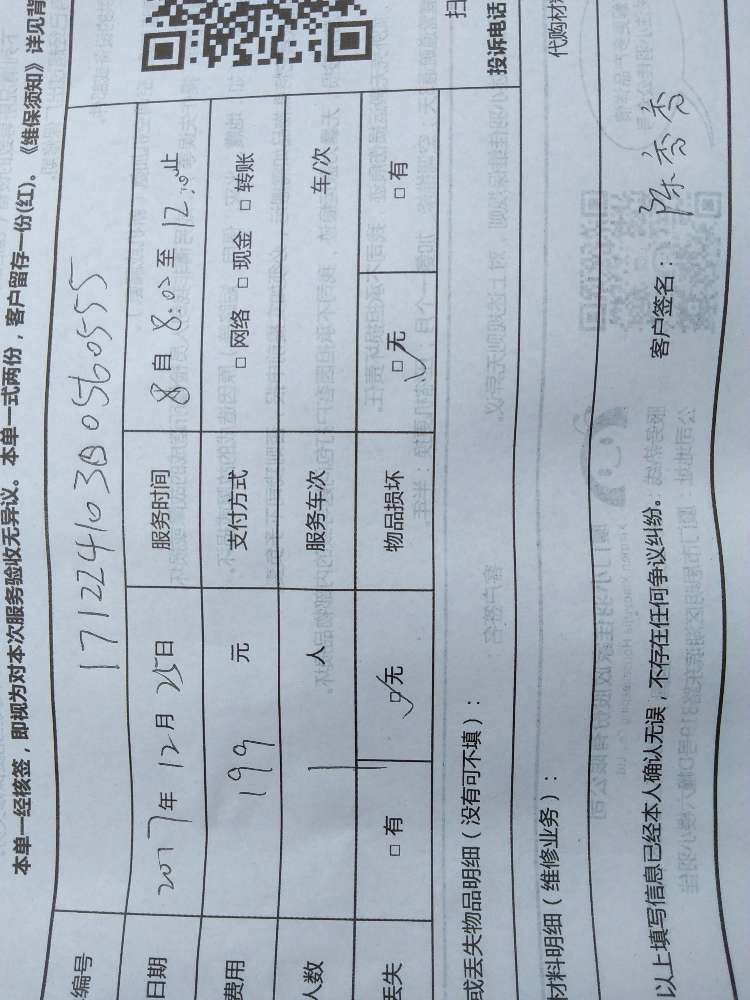 本单一经核签，即视为对本次服务验收无异议。本单一式两份，客户留存一份(红)。《维保须知》详见背
编号 171224103B0560555
日期 2017年12月25日 服务时间 8自8:00至12:00止
费用 199元 支付方式 □网络 □现金 □转账
人数 1人 服务车次 车/次
丢失 □有 ☑无 物品损坏 ☑无 □有
或丢失物品明细（没有可不填）： 投诉电话
材料明细（维修业务）： 代购材
以上填写信息已经本人确认无误，不存在任何争议纠纷。 客户签名：陈秀秀